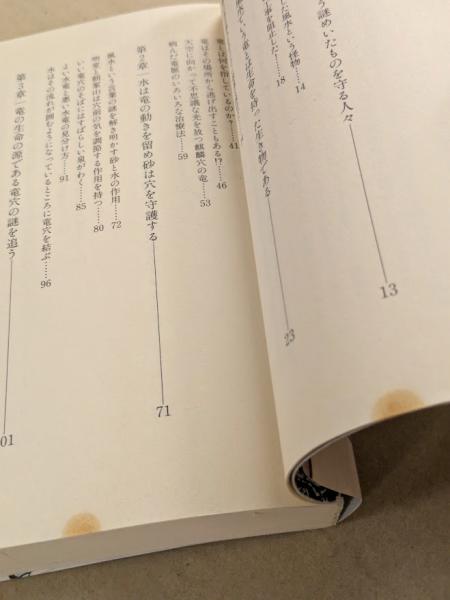 う謎めいたものを守る人々
13
した風水という怪物……14
事を阻止した……18
竜とは生命を持った生き物である
23
竜とは何を指しているのか？……41
竜はその場所から逃げ出すこともある!?……46
天空に向かって不思議な光を放つ麒麟穴の竜……53
病んだ竜脈のいろいろな治療法……59
第2章―水は竜の動きを留め砂は穴を守護する
71
風水という言葉の謎を解き明かす砂と水の作用……72
明堂と朝案山は穴前の気を調節する作用を持つ……80
いい竜穴のそばにはすばらしい泉がわく……85
よい水竜と悪い水竜の見分け方……91
水はその流れが囲むようになっているところに竜穴を結ぶ……96
第3章―竜の生命の源である竜穴の謎を追う
01